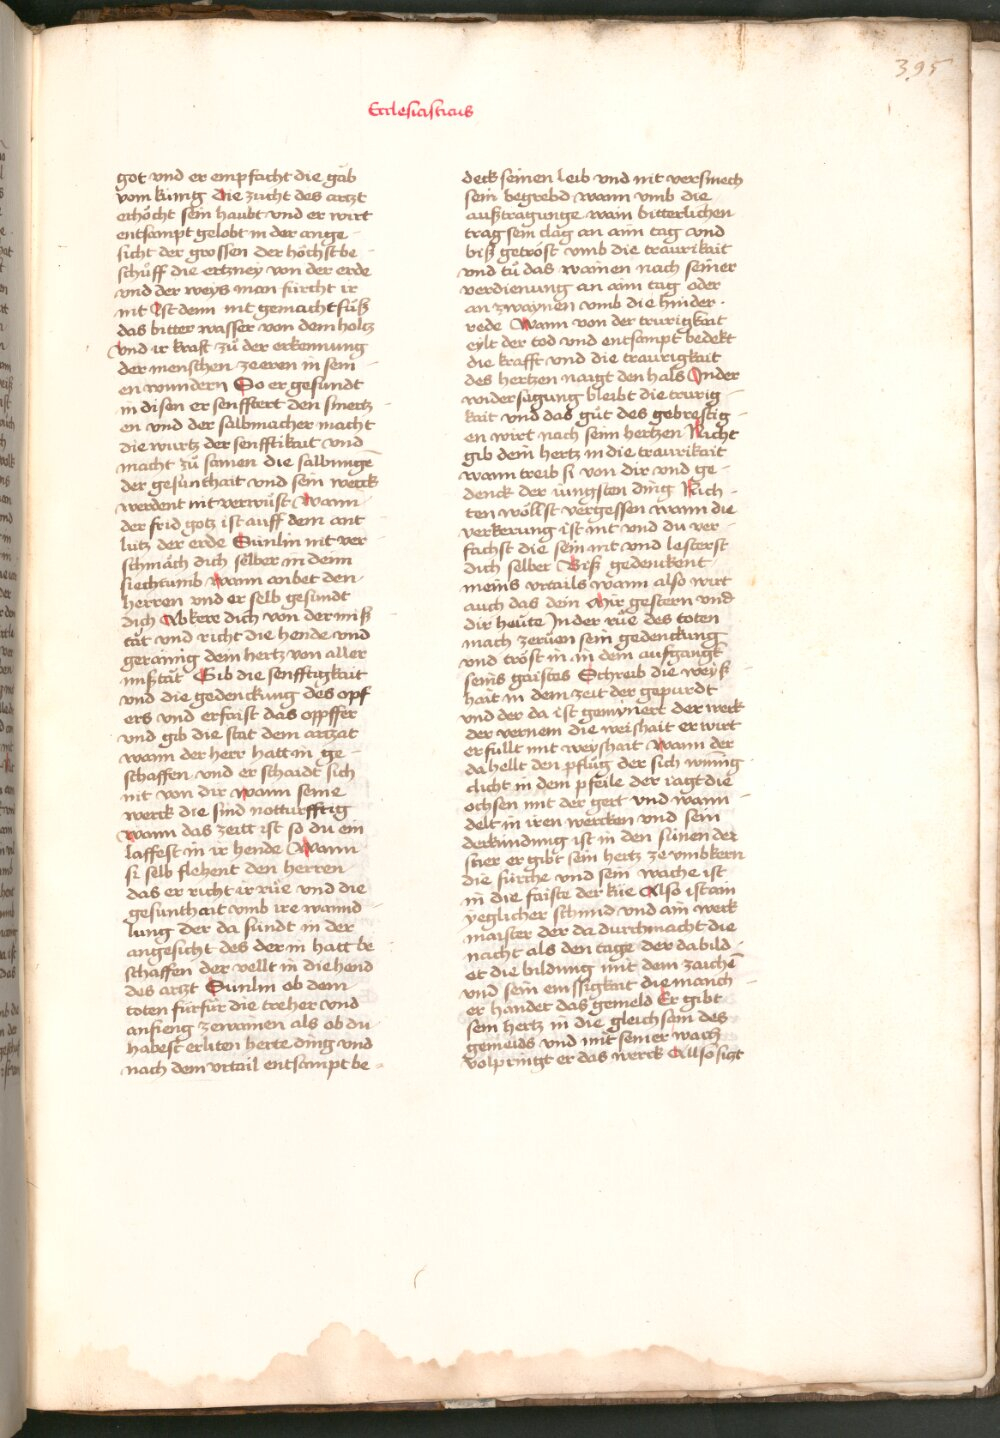 395
Ecclesiasticus
got vnd er empfacht die gab
vom kunig Die zucht des artzt
erhöcht sein haubt vnd er wirt
entsampt gelobt in der ange
sicht der grossen der höchst be
schüff die ertzney von der erde
vnd der weys man fürcht ir
nit Ist denn nit gemacht süß
das bitter wasser von dem holtz
vnd ir kraft zů der erkennung
der menschen zeeren in sein
en wundern So er gesundt
in disen er senfftert den smertz
en vnd der salbmacher macht
die wurtz der senfftikait vnd
macht zů samen die salbunge
der gesunthait vnd sein werck
werdent nit verwüst Wann
der frid gotz ist auff dem ant
lütz der erde Sünlin nit ver
schmäch dich selber in deim
siechtumb wann anbet den
herren vnd er selb gesundt
dich Abkere dich von der miß
tät vnd richt die hende vnd
gerainig dem hertz von aller
mißtät Gib die senfftigkait
vnd die gedenckung des opf
ers vnd erfaist das oppffer
vnd gib die stat dem artzat
wann der herr hatt in ge
schaffen vnd er schaidt sich
nit von dir wann seine
werck die sind notturfftig
wann das zeitt ist so du ein
laffest in ir hende Wann
si selb flehent den herren
das er richt ir rüe vnd die
gesunthait vmb ire wannd
lung der da sündt in der
angesicht des der in hatt be
schaffen der vellt in die hend
des artzt Sunlin ob dem
toten fürfür die treher vnd
anfieng zewainen als ob du
habest erliten herte ding vnd
nach dem vrtail entsampt be
deck seinen leib vnd nit versmech
sein begrebd wann vmb die
außtragunge wain bitterlichen
trag sein clag an aim tag vnd
biß getröst vmb die traurikait
vnd tů das wainen nach seiner
verdienung an aim tag oder
an zwaynen vmb die hinder
rede Wann von der trurigkait
eylt der tod vnd entsampt bedekt
die krafft vnd die traurigkait
des hertzen naigt den hals In der
vndersagung bleibt die trurig
kait vnd das gůt des gebrestig
en wirt nach seim hertzen Nicht
gib dein hertz in die traurikait
wann treib si von dir vnd ge
denck der iungsten ding Nich
ten wöllst vergessen wann die
verkerung ist nit vnd du ver
fachst die sein nit vnd lesterst
dich selber Biß gedenckent
meins vrtails wann also wirt
auch das dein Mir gestern vnd
dir heüte In der rüe des toten
mach zerüen sein gedenckung
vnd tröst in in dem aufgangk
seins gaistes Schreib die weyß
hait in dem zeit der gepurdt
vnd der da ist gemynert der werck
der vernem die weishait er wirt
erfüllt mit weyshait wann der
da hellt den pflüg der sich wunig
clicht in dem pfeile der iagt die
ochsen mit der gert vnd wann
delt in iren wercken vnd sein
derkündung ist in den sünen der
stier er gibt sein hertz ze vmbkern
die fürche vnd sein wache ist
in die faiste der küe Also ist ain
yeglicher schmid vnd ain werck
maister der da durchmacht die
nacht als den tage der da bild
et die bildung mit dem zaichē
vnd sein emssigkait die manch
er händer das gemeld Er gibt
sein hertz in die gleichsam des
gemelds vnd mit seiner wach
volpringt er das werck Allso sitzt